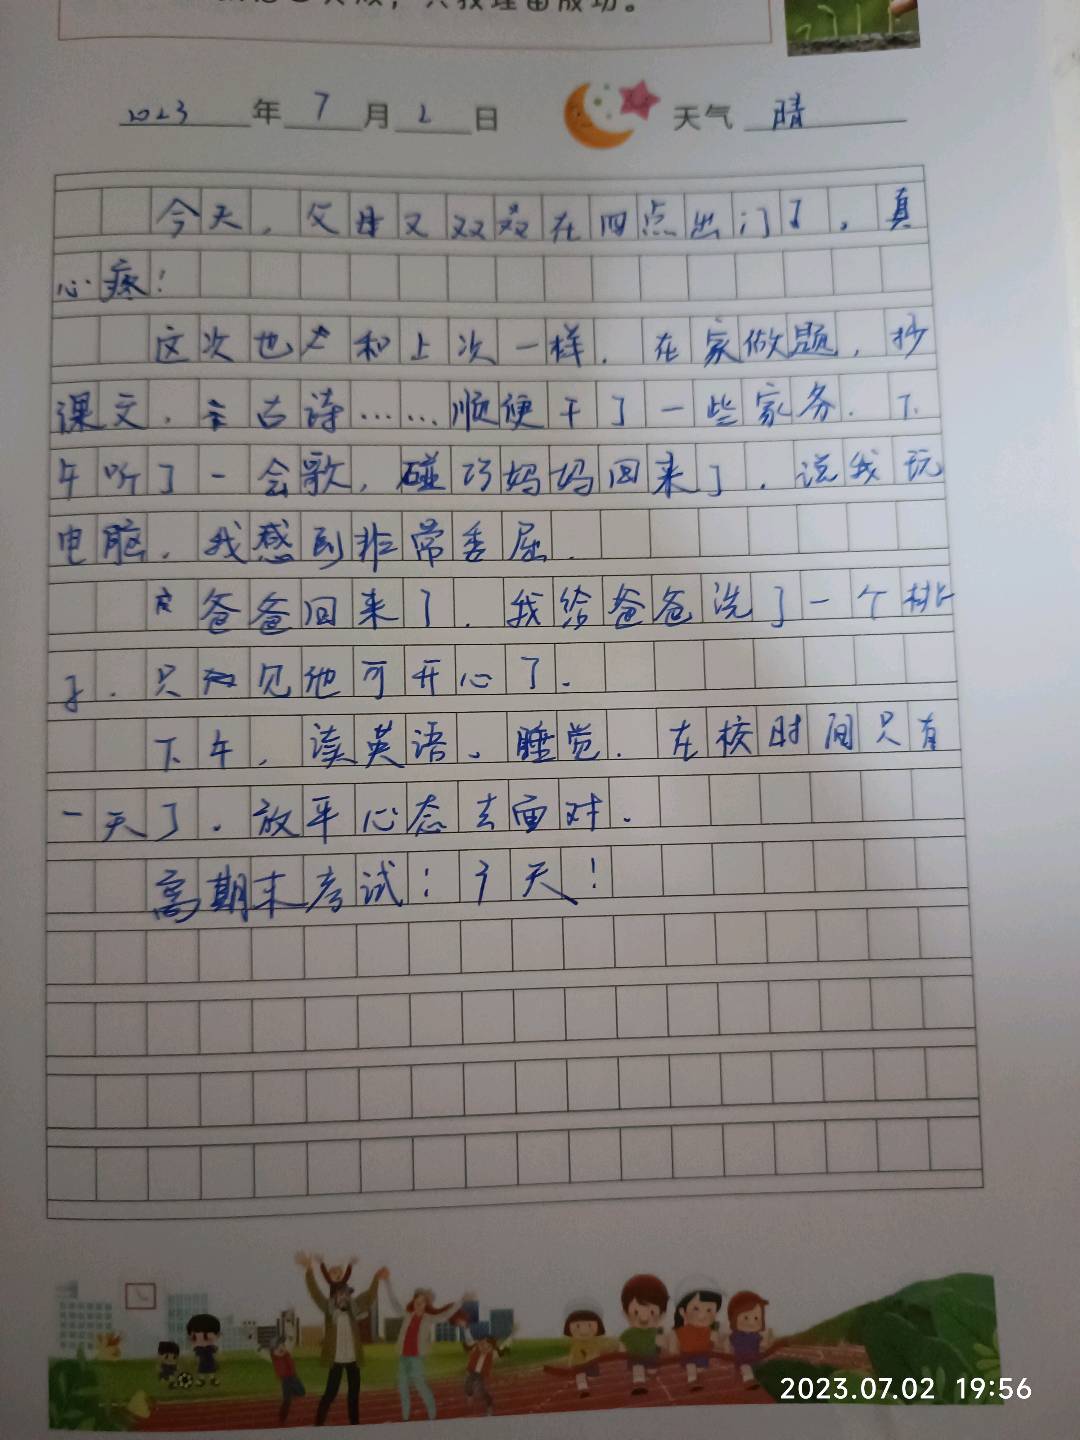 2023年7月2日 天气 晴
今天，父母又双叒在四点出门了，真
心疼！
这次也和上次一样，在家做题，抄
课文，古诗……顺便干了一些家务。下
午听了一会歌，碰巧妈妈回来了，说我玩
电脑，我感到非常委屈。
爸爸回来了，我给爸爸洗了一个桃
子，只见他可开心了。
下午，读英语、睡觉。在校时间只有
一天了，放平心态去面对。
离期末考试：3天！
2023.07.02 19:56